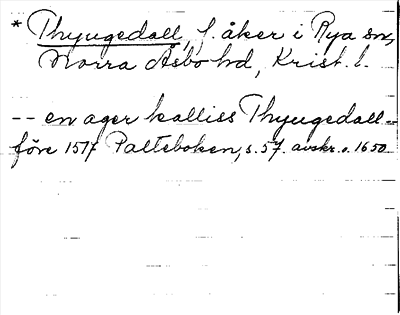 * Thyugedall, f. åker i Rya sn,
Norra Åsbo hd, Krist. l.
-- en ager kalliss Thyugedall --
före 1517 Palteboken, s. 57. avskr. o. 1650